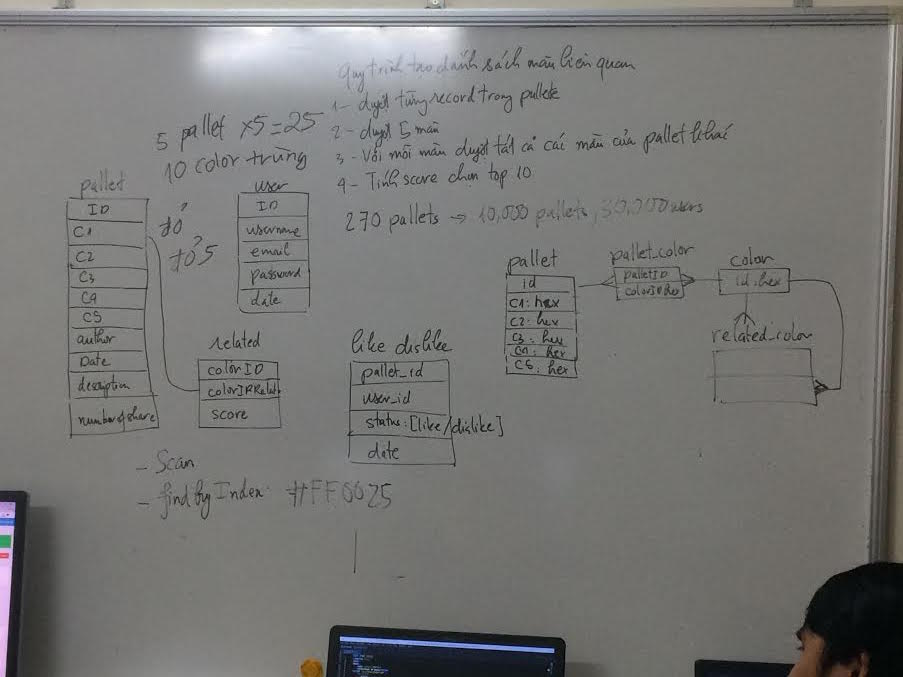 Quy trình tạo danh sách màu liên quan
1 - duyệt từng record trong pallete
2 - duyệt 5 màu
3 - Với mỗi màu duyệt tất cả các màu của pallet khác
4 - Tính score chọn top 10
270 pallets → 10,000 pallets, 30,000 users
5 pallet x5 = 25
10 color trùng
pallet
ID
C1
C2
C3
C4
C5
author
Date
description
number of share
đỏ
đỏ 5
user
ID
username
email
password
date
related
colorID
score
like dislike
pallet_id
user_id
status: [like/dislike]
date
pallet
id
C1: hex
C2: hex
C3: hex
C4: hex
C5: hex
pallet_color
palletID
color
id: hex
related_color
- Scan
- find by Index: